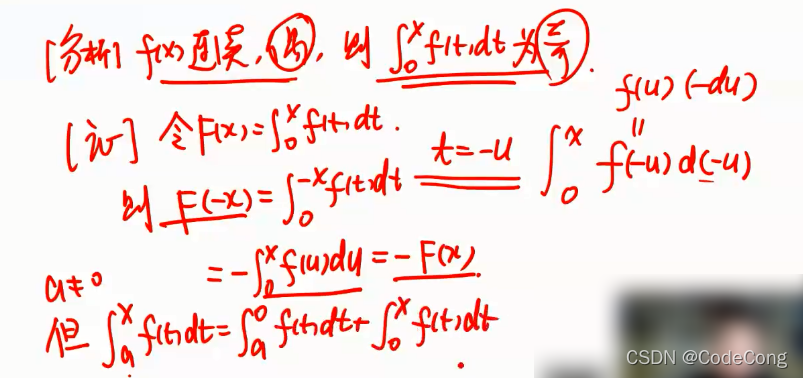 [分析] f(x)连续,偶, 则 ∫₀ˣ f(t)dt 为奇.
[证] 令F(x)=∫₀ˣ f(t)dt.
f(u)(-du)
॥
则 F(-x)=∫₀⁻ˣ f(t)dt t=-u ∫₀ˣ f(-u)d(-u)
=-∫₀ˣ f(u)du=-F(x).
a≠0
但 ∫ₐˣ f(t)dt=∫ₐ⁰ f(t)dt+∫₀ˣ f(t)dt
CSDN @CodeCong